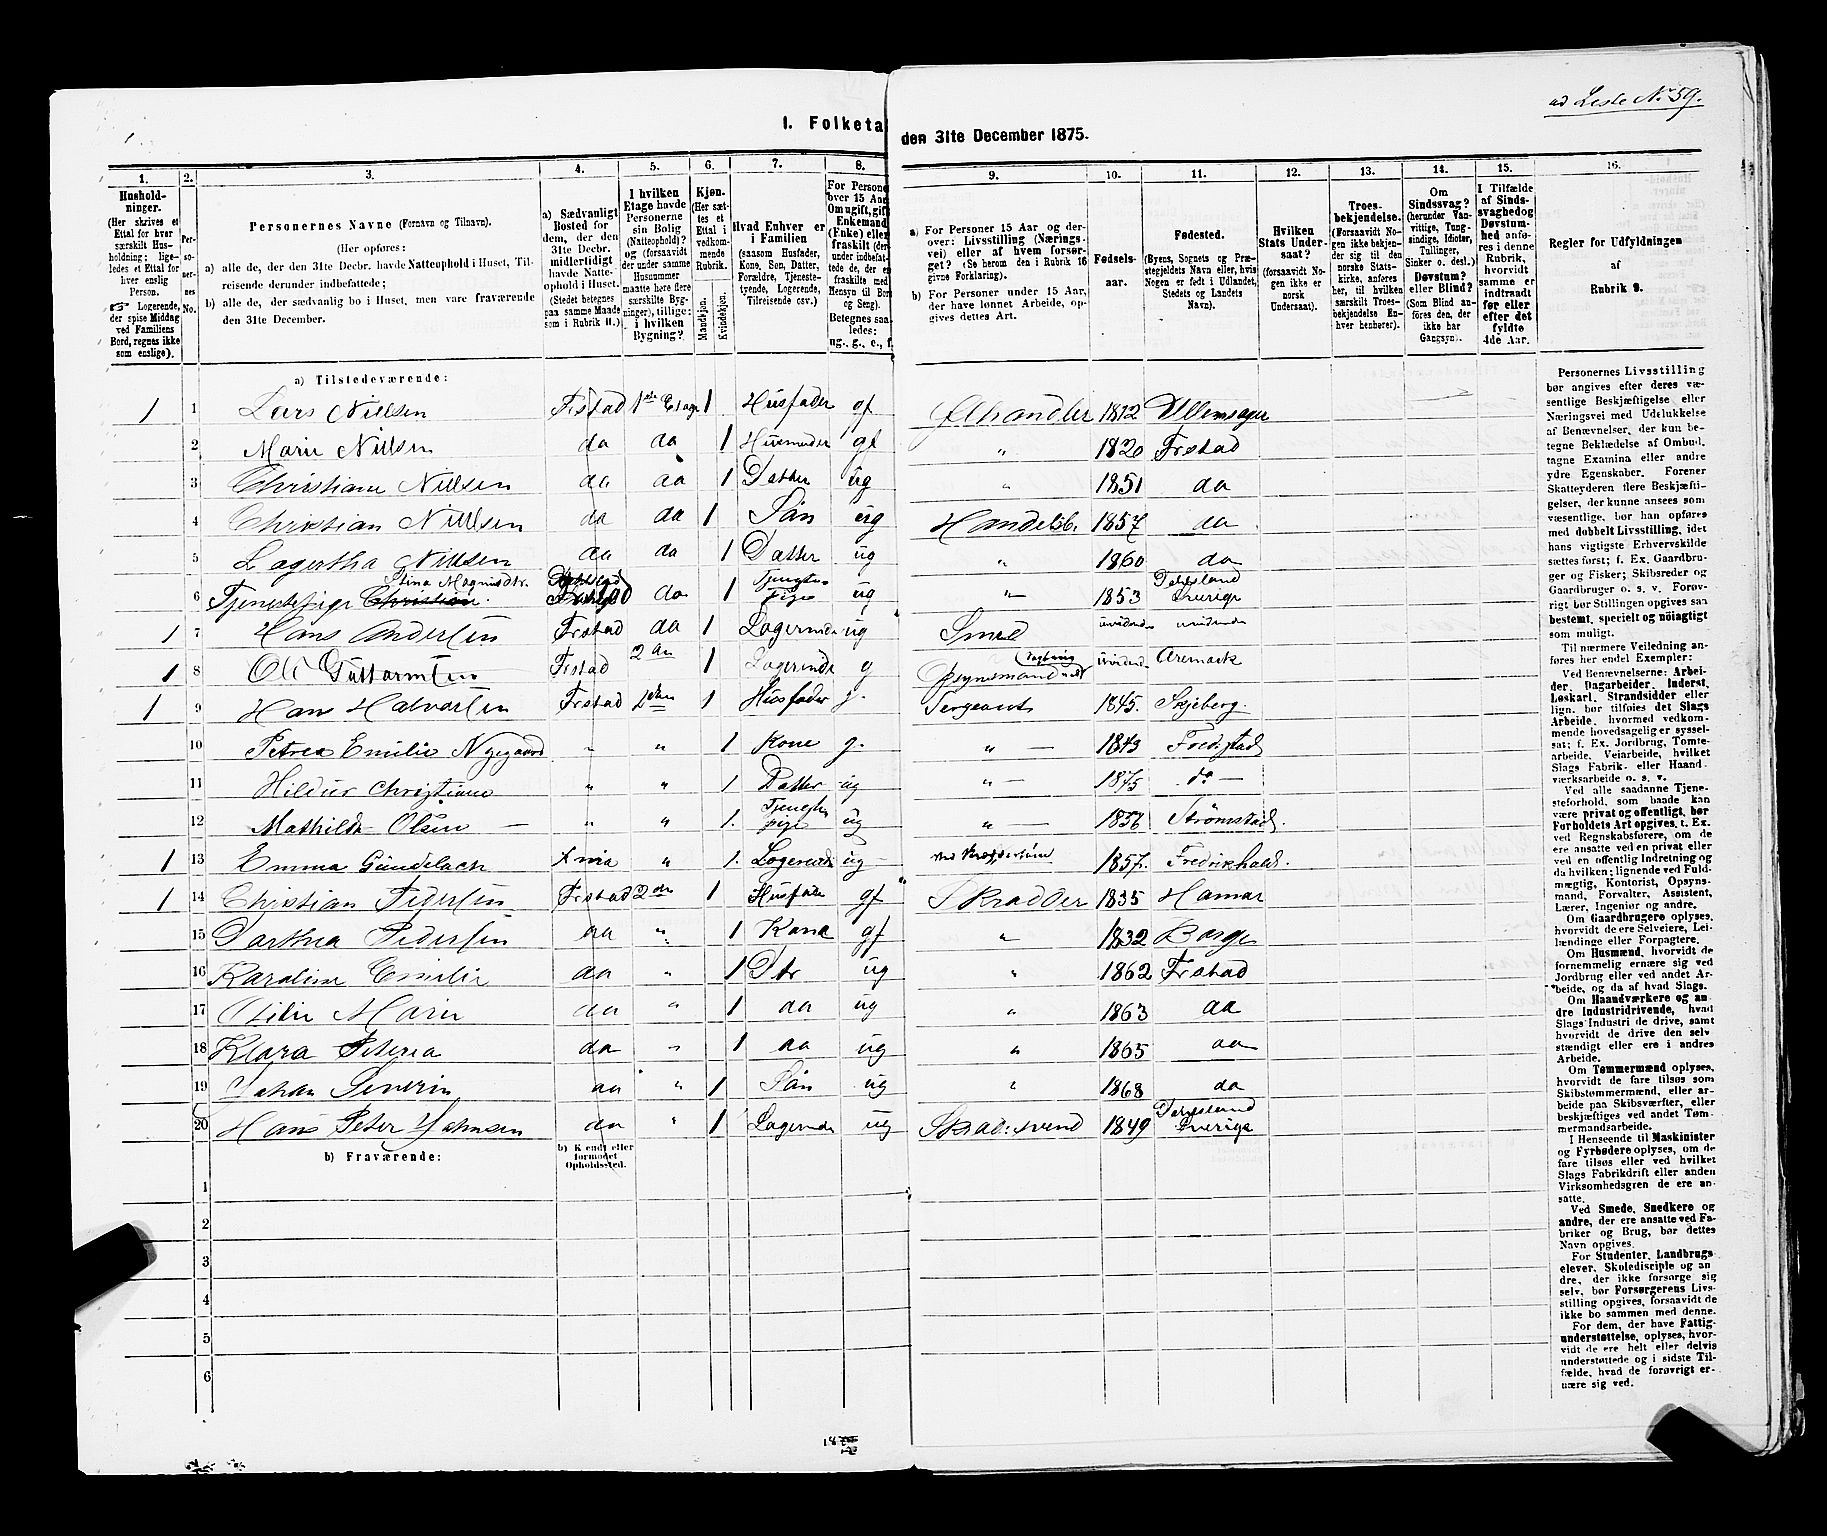 ad Liste No 59.
I. Folketa
den 31te December 1875.
1. 2. 3. 4. 5. 6. 7. 8. 9. 10. 11. 12. 13. 14. 15. 16.
Hushold-
ninger.
(Her skrives et
Ettal for hver
særskilt Hus-
holdning; lige-
ledes et Ettal for
hver enslig
Person.
Logerende,
der spise Middag
ved Familiens
Bord, regnes ikke
som enslige).
Per-
so-
ner-
nes
No.
Personernes Navne (Fornavn og Tilnavn).
(Her opføres:
a) alle de, der den 31te Decbr. havde Natteophold i Huset, Til-
reisende derunder indbefattede;
b) alle de, der sædvanlig bo i Huset, men vare fraværende
den 31te December.
a) Sædvanligt
Bosted for
dem, der den
31te Decbr.
midlertidigt
havde Natte-
ophold i Huset.
(Stedet betegnes
paa samme Maade
som i Rubrik 11.)
I hvilken
Etage havde
Personerne
sin Bolig
(Natteophold)?
(forsaavidt
der under samme
Husnummer
maatte høre flere
særskilte Byg-
ninger), tillige:
i hvilken
Bygning?
Kjøn.
(Her sæt-
tes et
Ettal i
vedkom-
mende
Rubrik.
Mandkjøn.
Kvindekjøn.
Hvad Enhver er
i Familien
(saasom Husfader,
Kone, Søn, Datter,
Forældre, Tjeneste-
tyende, Logerende,
Tilreisende osv.)
For Persone
over 15 Aar
Om ugift, gift
Enkemand
(Enke) eller
fraskilt (der
under indbefat-
tede de, der er
fraskilte med
Hensyn til Bord
og Seng).
Betegnes saa-
ledes:
ug., g., e., f.
a) For Personer 15 Aar og der-
over: Livsstilling (Nærings-
vei) eller af hvem forsør-
get? (Se herom den i Rubrik 16
givne Forklaring).
b) For Personer under 15 Aar,
der have lønnet Arbeide, op-
gives dettes Art.
Fødsels-
aar.
Fødested.
(Byens, Sognets og Præ-
stegjeldets Navn eller, hvis
Nogen er født i Udlandet,
Stedets og Landets
Navn).
Hvilken
Stats Under-
saat?
(forsaavidt No-
gen ikke er
norsk
Undersaat).
Troes-
bekjendelse.
(Forsaavidt No-
gen ikke bekjen-
der sig til den
norske Stats-
kirke, anføres
her, til hvilken
særskilt Troes-
bekjendelse En-
hver henhører).
Om
Sindssvag?
(herunder Van-
vittige, Tung-
sindige, Idioter,
Tullinger,
Sinker o. desl.)
Døvstum?
eller Blind?
(Som Blind an-
føres den, der
ikke har
Gangsyn).
I Tilfælde
af Sinds-
svaghed og
Døvstum-
hed anfø-
res i denne
Rubrik,
hvorvidt
samme er
indtraadt
før eller
efter det
fyldte
4de Aar.
Regler for Udfyldningen
af
Rubrik 9.
a) Tilstedeværende:
1 1 Lars Nielsen Frstad 1ste Etage 1 Husfader gf Ølhandler 1812 Ullensager
2 Marie Nielsen do do 1 Husmoder gf " 1820 Frstad
3 Christiane Nielsen do do 1 Datter ug " 1851 do
4 Christian Nielsen do do 1 Søn ug Handelsb. 1857 do
5 Lagertha Nielsen do do 1 Datter ug " 1860 do
6 Tjenestepige Stina Magnisdtr. Christian do 1 Tjenste pige ug " 1853 Dalsland Sverige
1 7 Hans Andersen Frstad do 1 Logerende ug Smed uvidende uvidende
1 8 Ole Guttormsen Frstad 2den 1 Logerende g Aremark
1 9 Hans Halvorsen Frstad 2den 1 Husfader g. Sergeant 1845. Skjeberg.
10 Petrea Emilie Nygaard " " 1 Kone g. " — 1843 Fredrstad
11 Hildur Christiane " " 1 Datter ug " — 1875 do —
12 Mathilde Olsen — " " 1. Tjenste pige ug " — 1856 Strömstad.
1 13 Emma Gundelach Xnia " 1. Logerende ug — 1857. Fredrikhald.
1 14 Christian Pedersen Frstad 2den 1 Husfader gf Skrædder 1835 Hamar
15 Dorthea Pedersen do " 1 Kone gf " 1832 Borge
16 Karoline Emilie do " 1 Dtr ug " 1862 Frstad
17 Otilie Marie do " 1 do ug " 1863 do
18 Klara Peterea do " 1 do ug " 1865 do
19 Johan Severin do " 1 Søn ug " 1868 do
20 Hans Peter Johnsen do " 1 Logerende ug Skrad.svend 1849 Dalsland Sverige
b) Fraværende:
b) Kjendt eller
formodet
Opholdssted.
1
2
3
4
5
6
Personernes Livsstilling
bør angives efter deres væ-
sentlige Beskjæftigelse eller
Næringsvei med Udelukkelse
af Benævnelser, der kun be-
tegne Beklædelse af Ombud,
tagne Examina eller andre
ydre Egenskaber. Forener
Skatteyderen flere Beskjæfti-
gelser, der kunne ansees som
væsentlige, bør han opføres
med dobbelt Livsstilling, idet
hans vigtigste Erhvervskilde
sættes først; f. Ex. Gaardbru-
ger og Fisker; Skibsreder og
Gaardbruger o. s. v. Forøv-
rigt bør Stillingen opgives saa
bestemt, specielt og nöiagtigt
som muligt.
Til nærmere Veiledning an-
føres her endel Exempler:
Ved Benævnelserne: Arbei-
der, Dagarbeider, Inderst,
Løskarl, Strandsidder eller
lign. bør tilføies det Slags
Arbeide, hvormed vedkom-
mende hovedsagelig er syssel-
sat; f. Ex. Jordbrug, Tomte-
arbeide, Veiarbeide, hvilket
Slags Fabrik- eller Haand-
værksarbeide o. s. v.
Ved alle saadanne Tjene-
steforhold, som baade kan
være privat og offentligt, bør
Forholdets Art opgives, t. Ex.
ved Regnskabsførere, om de
ere ansatte ved en privat eller
ved en offentlig Indretning og
da hvilken; lignende ved Fuld-
mægtig, Kontorist, Opsyns-
mand, Forvalter, Assistent,
Lærer, Ingeniør og andre.
Om Gaardbrugere oplyses,
hvorvidt de ere Selveiere, Lei-
lændinge eller Forpagtere.
Om Husmænd, hvorvidt de
fornemmelig ernære sig ved
Jordbrug eller ved andet Ar-
beide, og da af hvad Slags.
Om Haandværkere og an-
dre Industridrivende, hvad
Slags Industri de drive, samt
hvorvidt de drive den selv-
stændigt eller ere i andres
Arbeide.
Om Tømmermænd oplyses,
hvorvidt de fare tilsøs som
Skibstømmermænd, eller ar-
beide paa Skibsværfter, eller
beskjæftiges ved andet Tøm-
mermandsarbeide.
I Henseende til Maskinister
og Fyrbødere oplyses, om de
fare tilsøs eller ved hvilket
Slags Fabrikdrift eller anden
Virksomhedsgren de ere an-
satte.
Ved Smede, Snedkere og
andre, der ere ansatte ved Fa-
briker og Brug, bør dettes
Navn opgives.
For Studenter, Landbrugs-
elever, Skoledisciple og an-
dre, der ikke forsørge sig
selv, bør Forsørgerens Livs-
stilling opgives, forsaavidt de
ikke bo sammen med denne.
For dem, der have Fattig-
understøttelse, oplyses, hvor-
vidt de ere helt eller delvis
understøttede og i sidste Til-
fælde, hvad de forøvrigt er-
nære sig ved.